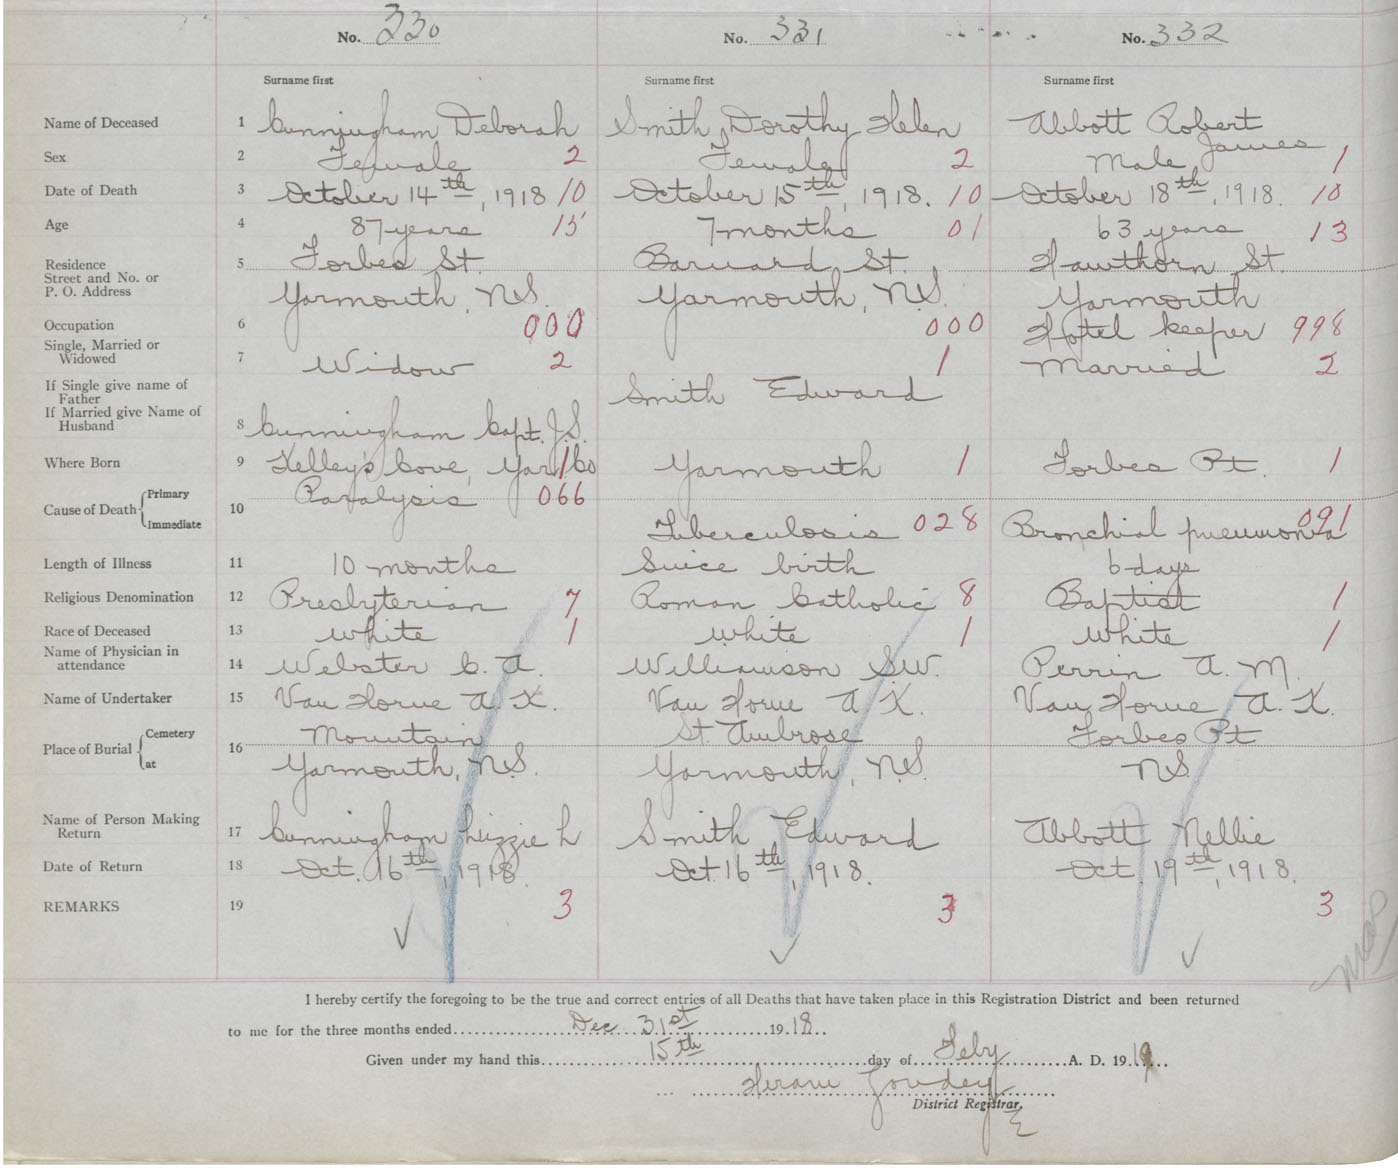 No. 330 No. 331 No. 332
Surname first Surname first Surname first
Name of Deceased 1 Cunningham Deborah Smith, Dorothy Helen Abbott Robert James
Sex 2 Female 2 Female 2 Male 1
Date of Death 3 October 14th, 1918 10 October 15th, 1918. 10 October 18th, 1918. 10
Age 4 87 years 15 7 months 01 63 years 13
Residence 5 Forbes St. Barnard St. Hawthorn St.
Street and No. or
P. O. Address Yarmouth, N.S. Yarmouth, N.S. Yarmouth
Occupation 6 000 000 Hotel keeper 998
Single, Married or
Widowed 7 Widow 2 1 Married 2
If Single give name of
Father Smith Edward
If Married give Name of
Husband 8 Cunningham Capt. J.S.
Where Born 9 Kelley's Cove, Yar Co 1 Yarmouth 1 Forbes Pt. 1
Cause of Death Primary 10 Paralysis 066
Immediate Tuberculosis 028 Bronchial pneumonia 091
Length of Illness 11 10 months Since birth 6 days
Religious Denomination 12 Presbyterian 7 Roman Catholic 8 Baptist 1
Race of Deceased 13 White 1 White 1 White 1
Name of Physician in
attendance 14 Webster C. A. Williamson S.W. Perrin A. M.
Name of Undertaker 15 Van Horne A. K. Van Horne A K. Van Horne A. K.
Place of Burial Cemetery 16 Mountain St. Ambrose Forbes Pt
at Yarmouth, N.S. Yarmouth, N.S. N.S.
Name of Person Making
Return 17 Cunningham Lizzie h Smith Edward Abbott Nellie
Date of Return 18 Oct. 16th, 1918. Oct. 16th, 1918. Oct. 19th, 1918.
REMARKS 19 3 3 3
I hereby certify the foregoing to be the true and correct entries of all Deaths that have taken place in this Registration District and been returned
to me for the three months ended Dec 31st 1918
Given under my hand this 15th day of Feby A. D. 1919
Hiram Goudey
District Registrar.